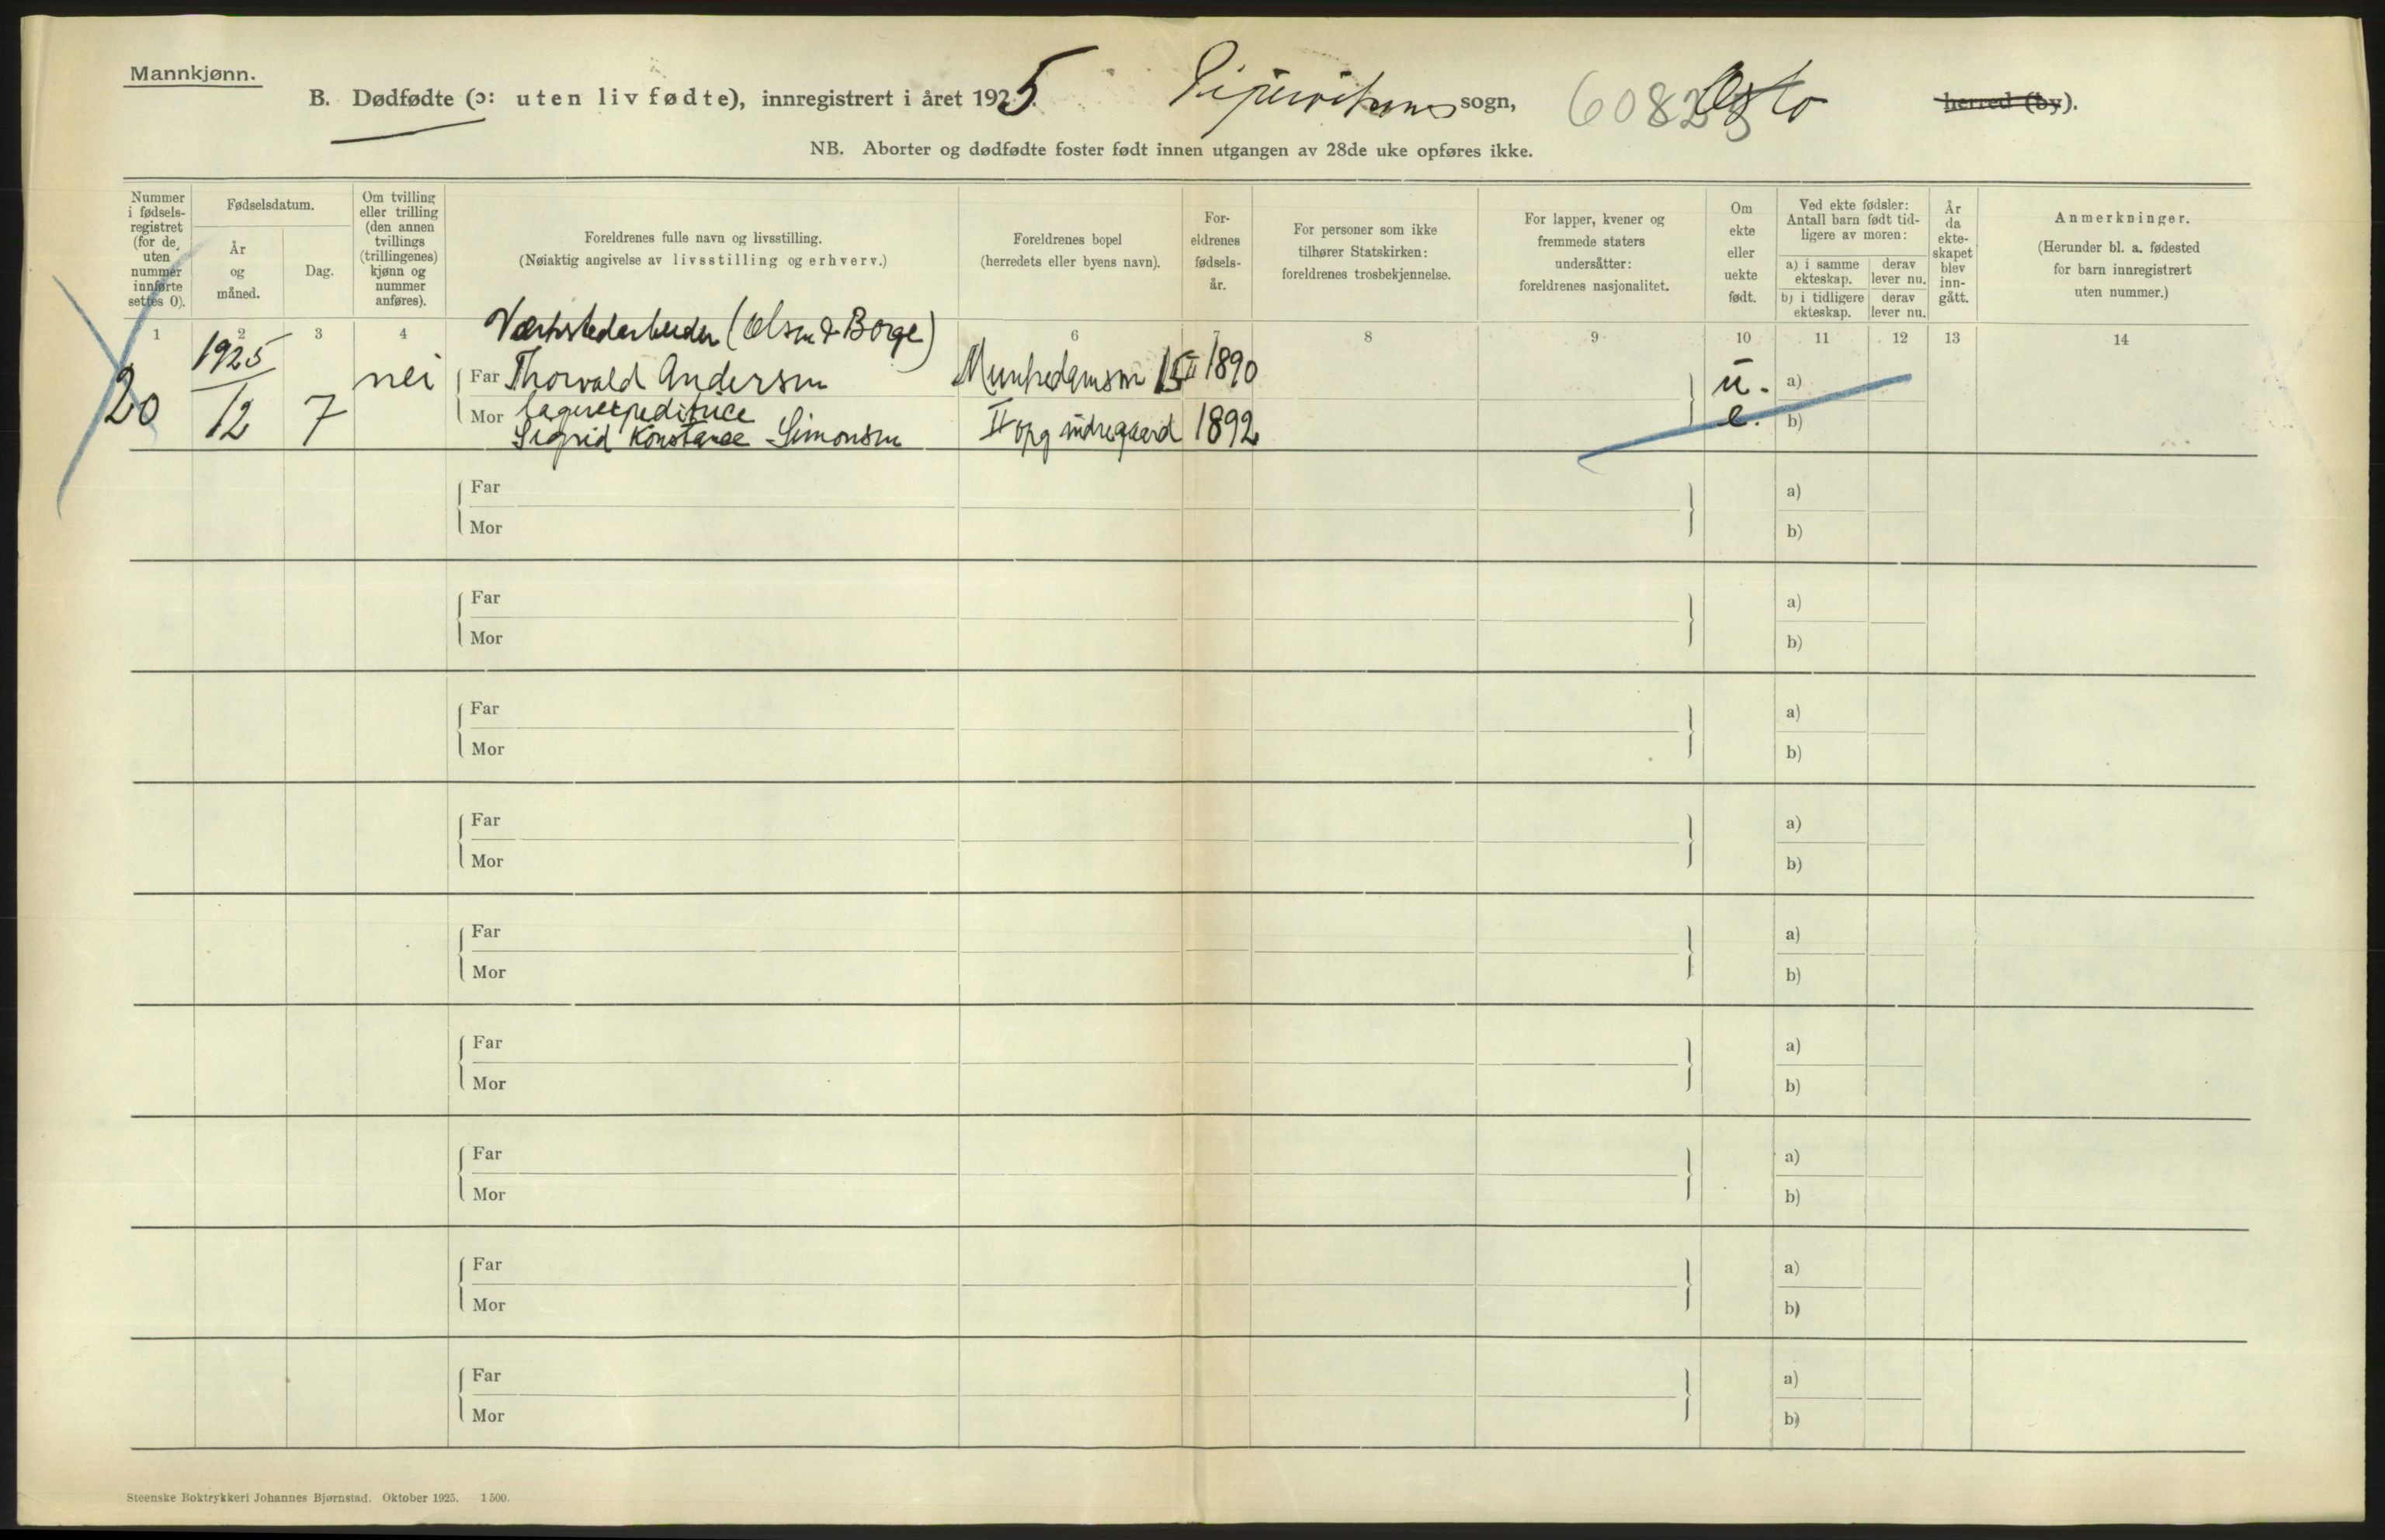 Mannkjønn.
B. Dødfødte (ɔ: uten liv fødte), innregistrert i året 1925. Pipervikens sogn, Oslo herred (by).
NB. Aborter og dødfødte foster født innen utgangen av 28de uke opføres ikke.
Nummer i fødsels- registret (for de uten nummer innførte settes 0).
Fødselsdatum.
År og måned.
Dag.
Om tvilling eller trilling (den annen tvillings (trillingenes) kjønn og nummer anføres).
Foreldrenes fulle navn og livsstilling.
(Nøiaktig angivelse av livsstilling og erhverv.)
Foreldrenes bopel
(herredets eller byens navn).
For- eldrenes fødsels- år.
For personer som ikke tilhører Statskirken: foreldrenes trosbekjennelse.
For lapper, kvener og fremmede staters undersåtter: foreldrenes nasjonalitet.
Om ekte eller uekte født.
Ved ekte fødsler: Antall barn født tid- ligere av moren:
a) i samme ekteskap. derav lever nu.
b) i tidligere ekteskap. derav lever nu.
År da ekte- skapet blev inn- gått.
Anmerkninger.
(Herunder bl. a. fødested for barn innregistrert uten nummer.)
1 2 3 4 6 7 8 9 10 11 12 13 14
Værkstedarbeider (Olsen & Borge)
20 1925 12 7 nei Far Thorvald Andersen Munkedamsvn 15 II 1890 u. a)
Mor lagerexpeditrice
Sigrid Konstance Simonsen II opg indregaard 1892 e. b)
Far a)
Mor b)
Far a)
Mor b)
Far a)
Mor b)
Far a)
Mor b)
Far a)
Mor b)
Far a)
Mor b)
Far a)
Mor b)
Far a)
Mor b)
Far a)
Mor b)
Steenske Boktrykkeri Johannes Bjørnstad. Oktober 1925. 1500.